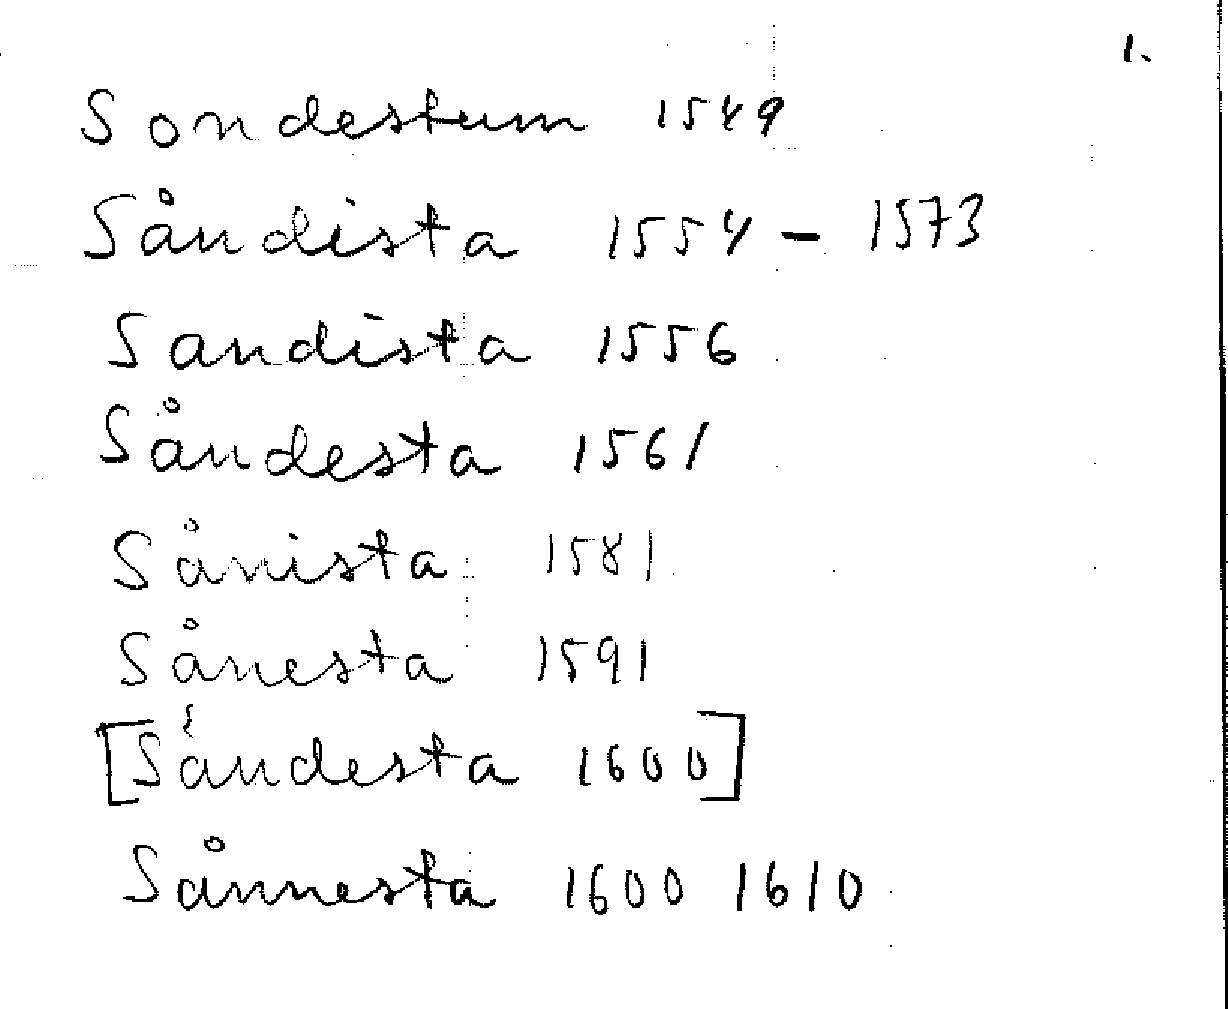 1.
Sondestum 1549
Såndista 1554 - 1573
Sandista 1556
Såndesta 1561
Sånista 1581
Sånesta 1591
[Såndesta 1600]
Sånnesta 1600 1610